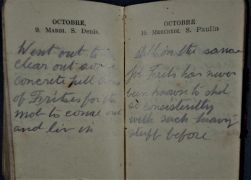 OCTOBRE,
9. MARDI. S. Denis.
Went out to
clear out some
concrete pill boxes
of Fritzes for the
mob to come out
and live in
OCTOBRE
10. MERCREDI. S. Paulin
the same
for Fritz has never
been known to shell
so consistently
with such heavy
stuff before